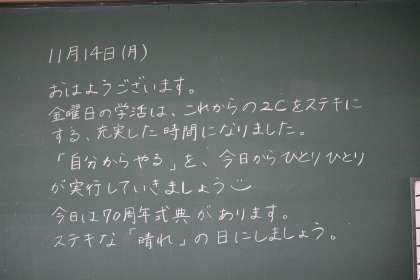 11月14日(月)
おはようございます。
金曜日の学活は、これからの2Cをステキに
する、充実した時間になりました。
「自分からやる」を、今日からひとりひとり
が実行していきましょう
今日は70周年式典があります。
ステキな「晴れ」の日にしましょう。